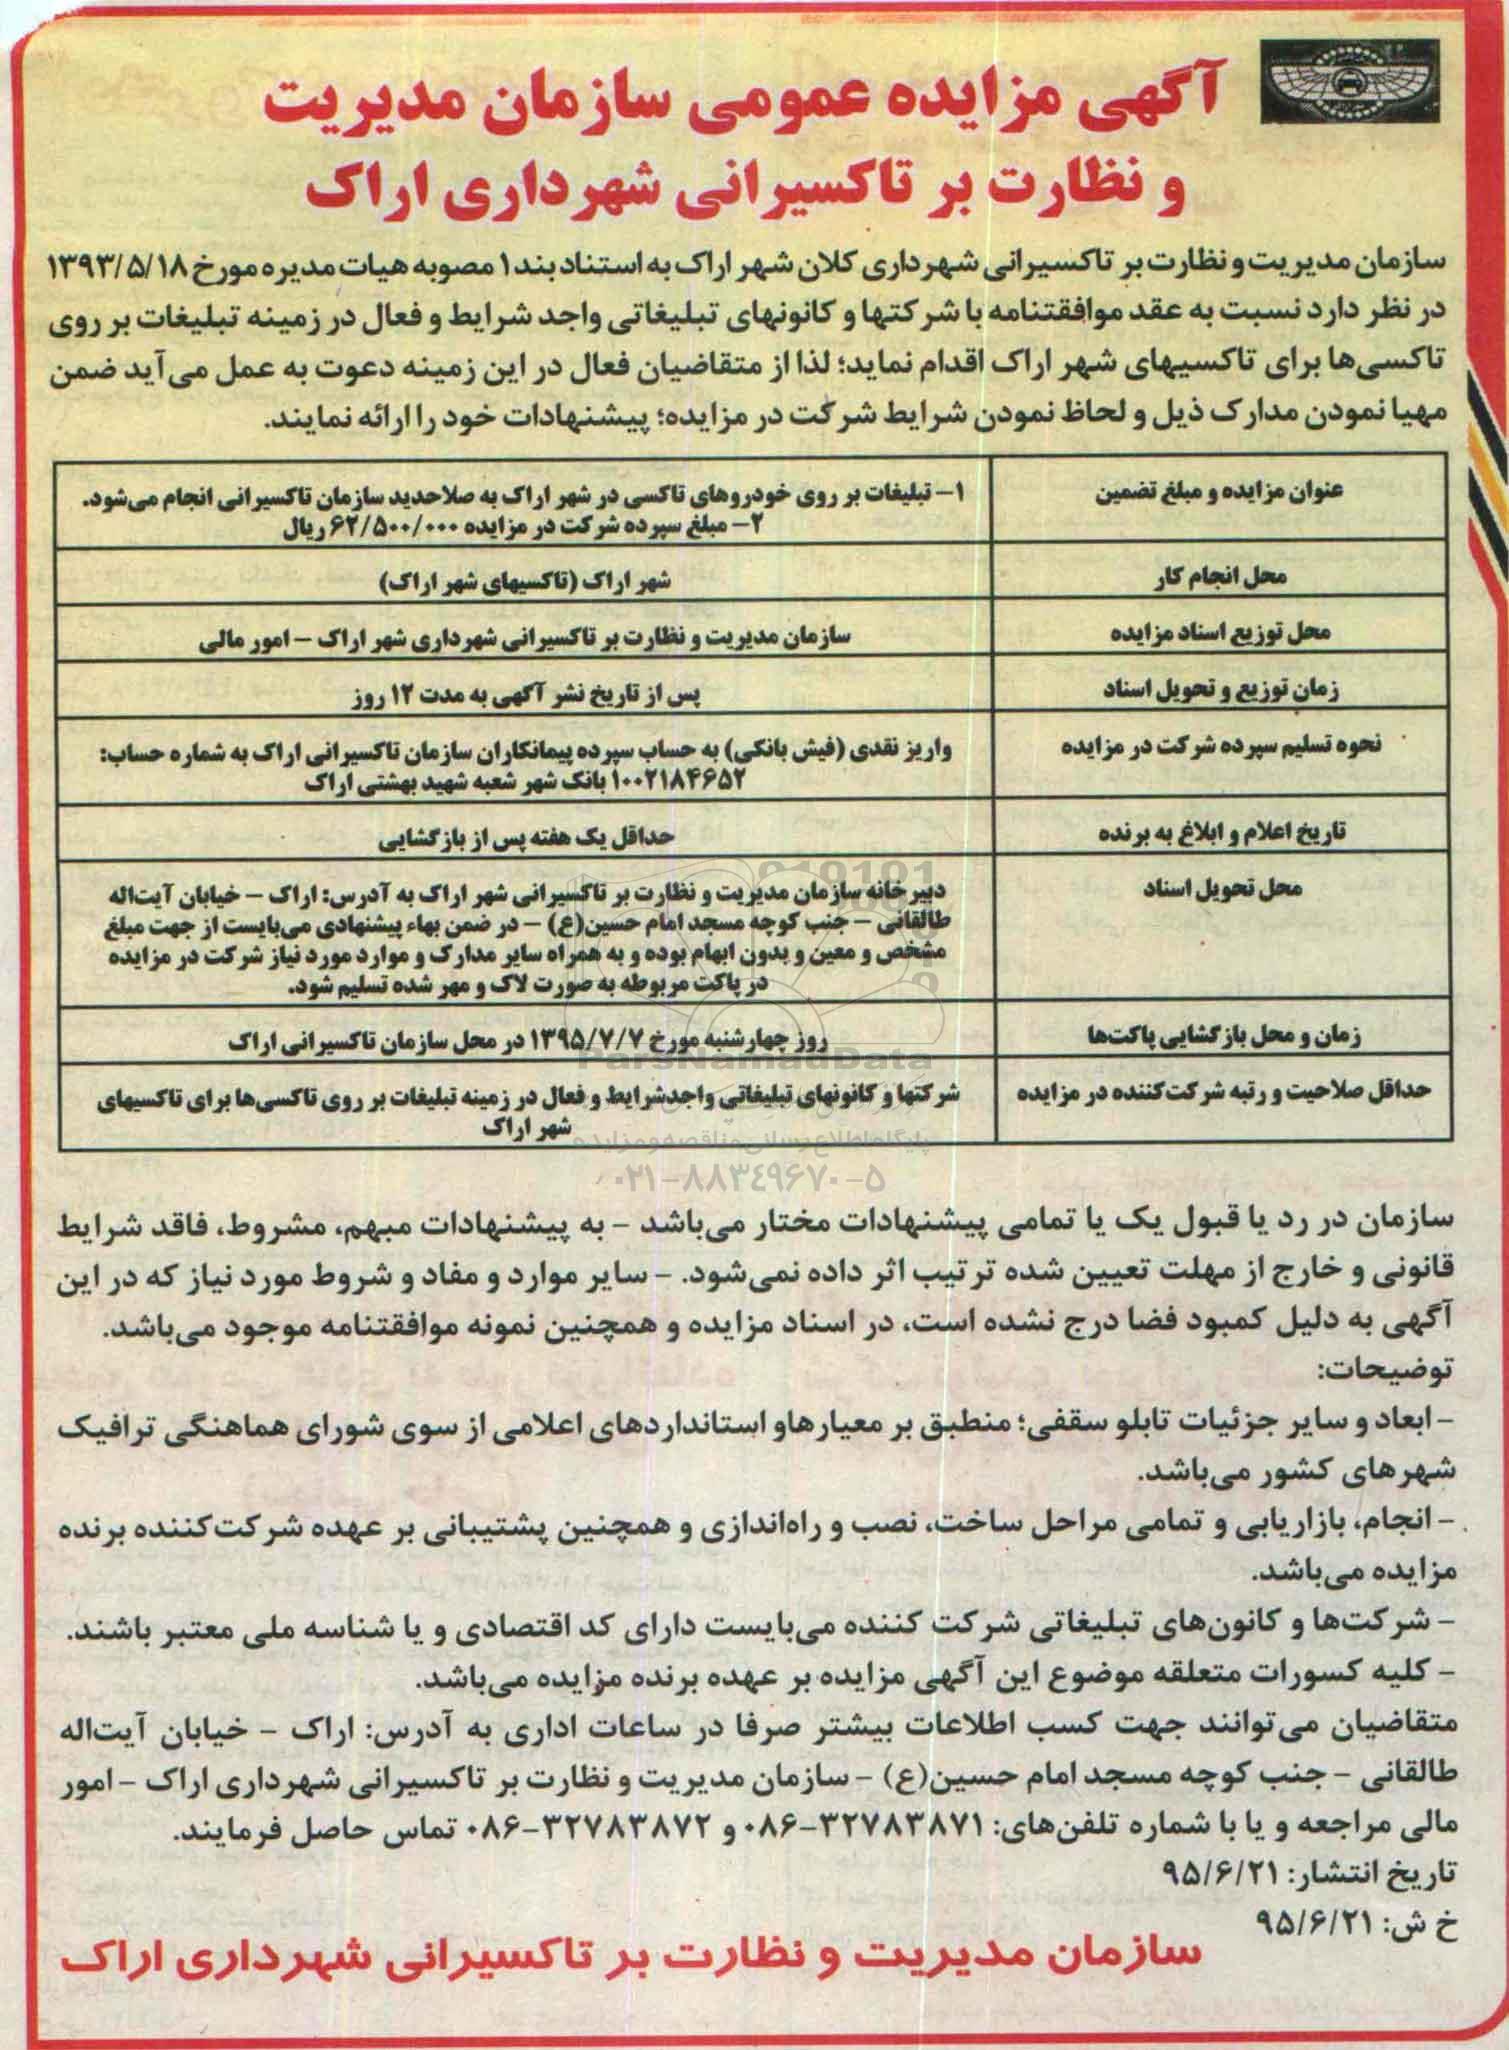 آگهی مزایده عمومی سازمان مدیریت
و نظارت بر تاکسیرانی شهرداری اراک
سازمان مدیریت و نظارت بر تاکسیرانی شهرداری کلان شهر اراک به استناد بند ۱ مصوبه هیات مدیره مورخ ۱۳۹۳/۵/۱۸
در نظر دارد نسبت به عقد موافقتنامه با شرکتها و کانونهای تبلیغاتی واجد شرایط و فعال در زمینه تبلیغات بر روی
تاکسی‌ها برای تاکسیهای شهر اراک اقدام نماید؛ لذا از متقاضیان فعال در این زمینه دعوت به عمل می‌آید ضمن
مهیا نمودن مدارک ذیل و لحاظ نمودن شرایط شرکت در مزایده؛ پیشنهادات خود را ارائه نمایند.
عنوان مزایده و مبلغ تضمین
۱- تبلیغات بر روی خودروهای تاکسی در شهر اراک به صلاحدید سازمان تاکسیرانی انجام می‌شود.
۲- مبلغ سپرده شرکت در مزایده ۶۲/۵۰۰/۰۰۰ ریال
محل انجام کار
شهر اراک (تاکسیهای شهر اراک)
محل توزیع اسناد مزایده
سازمان مدیریت و نظارت بر تاکسیرانی شهرداری شهر اراک - امور مالی
زمان توزیع و تحویل اسناد
پس از تاریخ نشر آگهی به مدت ۱۲ روز
نحوه تسلیم سپرده شرکت در مزایده
واریز نقدی (فیش بانکی) به حساب سپرده پیمانکاران سازمان تاکسیرانی اراک به شماره حساب:
۱۰۰۲۱۸۴۶۵۲ بانک شهر شعبه شهید بهشتی اراک
تاریخ اعلام و ابلاغ به برنده
حداقل یک هفته پس از بازگشایی
محل تحویل اسناد
دبیرخانه سازمان مدیریت و نظارت بر تاکسیرانی شهر اراک به آدرس: اراک - خیابان آیت‌اله
طالقانی - جنب کوچه مسجد امام حسین(ع) - در ضمن بهاء پیشنهادی می‌بایست از جهت مبلغ
مشخص و معین و بدون ابهام بوده و به همراه سایر مدارک و موارد مورد نیاز شرکت در مزایده
در پاکت مربوطه به صورت لاک و مهر شده تسلیم شود.
زمان و محل بازگشایی پاکت‌ها
روز چهارشنبه مورخ ۱۳۹۵/۷/۷ در محل سازمان تاکسیرانی اراک
ParsNamadData
حداقل صلاحیت و رتبه شرکت‌کننده در مزایده
شرکتها و کانونهای تبلیغاتی واجدشرایط و فعال در زمینه تبلیغات بر روی تاکسی‌ها برای تاکسیهای
شهر اراک
پایگاه اطلاع رسانی مناقصه و مزایده
۰۲۱-۸۸۳۴۹۶۷۰-۵
سازمان در رد یا قبول یک یا تمامی پیشنهادات مختار می‌باشد - به پیشنهادات مبهم، مشروط، فاقد شرایط
قانونی و خارج از مهلت تعیین شده ترتیب اثر داده نمی‌شود. - سایر موارد و مفاد و شروط مورد نیاز که در این
آگهی به دلیل کمبود فضا درج نشده است، در اسناد مزایده و همچنین نمونه موافقتنامه موجود می‌باشد.
توضیحات:
- ابعاد و سایر جزئیات تابلو سقفی؛ منطبق بر معیارهاو استانداردهای اعلامی از سوی شورای هماهنگی ترافیک
شهرهای کشور می‌باشد.
- انجام، بازاریابی و تمامی مراحل ساخت، نصب و راه‌اندازی و همچنین پشتیبانی بر عهده شرکت‌کننده برنده
مزایده می‌باشد.
- شرکت‌ها و کانون‌های تبلیغاتی شرکت کننده می‌بایست دارای کد اقتصادی و یا شناسه ملی معتبر باشند.
- کلیه کسورات متعلقه موضوع این آگهی مزایده بر عهده برنده مزایده می‌باشد.
متقاضیان می‌توانند جهت کسب اطلاعات بیشتر صرفا در ساعات اداری به آدرس: اراک - خیابان آیت‌اله
طالقانی - جنب کوچه مسجد امام حسین(ع) - سازمان مدیریت و نظارت بر تاکسیرانی شهرداری اراک - امور
مالی مراجعه و یا با شماره تلفن‌های: ۳۲۷۸۳۸۷۱-۰۸۶ و ۳۲۷۸۳۸۷۲-۰۸۶ تماس حاصل فرمایند.
تاریخ انتشار: ۹۵/۶/۲۱
خ ش: ۹۵/۶/۲۱
سازمان مدیریت و نظارت بر تاکسیرانی شهرداری اراک